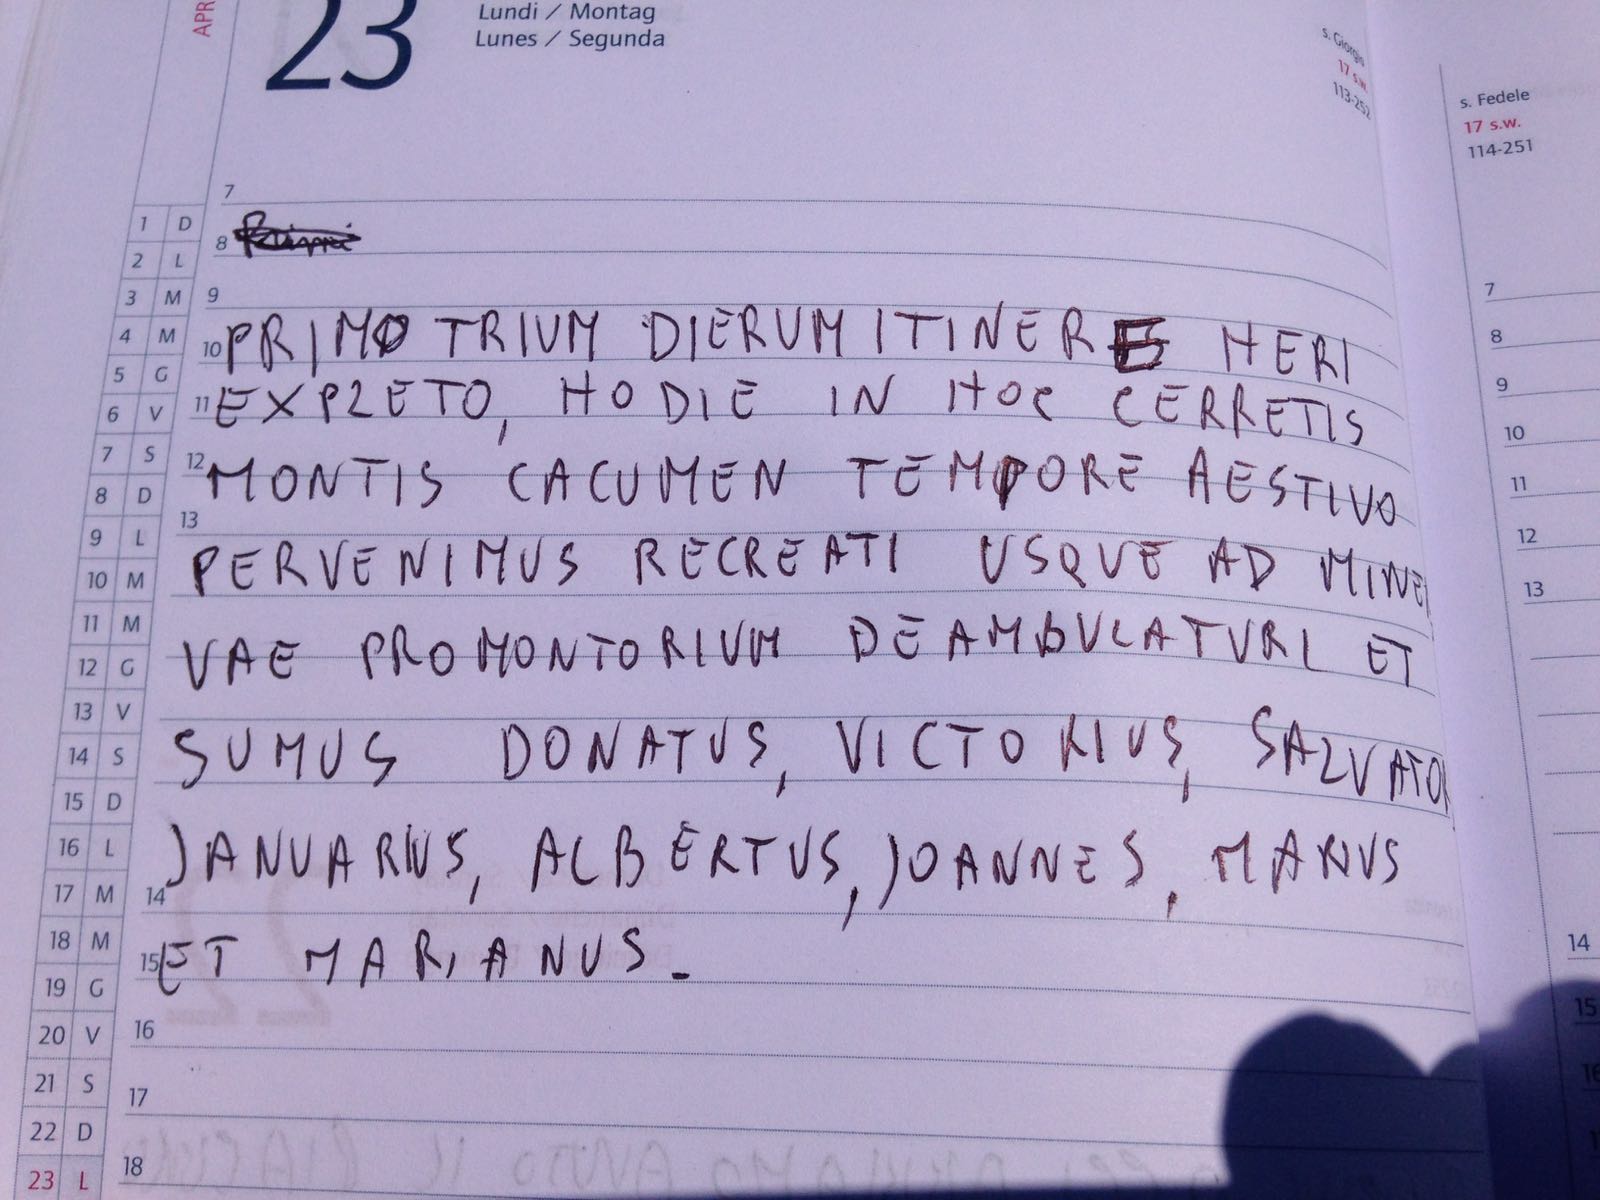 APR
23
Lundi / Montag
Lunes / Segunda
s. Giorgio
17 s.w.
113-252
s. Fedele
17 s.w.
114-251
7
8
9
PRIMO TRIUM DIERUM ITINERE HERI
EXPLETO, HODIE IN HOC CERRETIS
MONTIS CACUMEN TEMPORE AESTIVO
PERVENIMUS RECREATI USQVE AD MINER
VAE PROMONTORIUM DEAMBULATURI ET
SUMUS DONATUS, VICTORIUS, SALVATOR
JANUARIUS, ALBERTUS, JOANNES, MARIUS
ET MARIANUS.
10
11
12
13
14
15
16
17
18
1 D
2 L
3 M
4 M
5 G
6 V
7 S
8 D
9 L
10 M
11 M
12 G
13 V
14 S
15 D
16 L
17 M
18 M
19 G
20 V
21 S
22 D
23 L
7
8
9
10
11
12
13
14
15
16